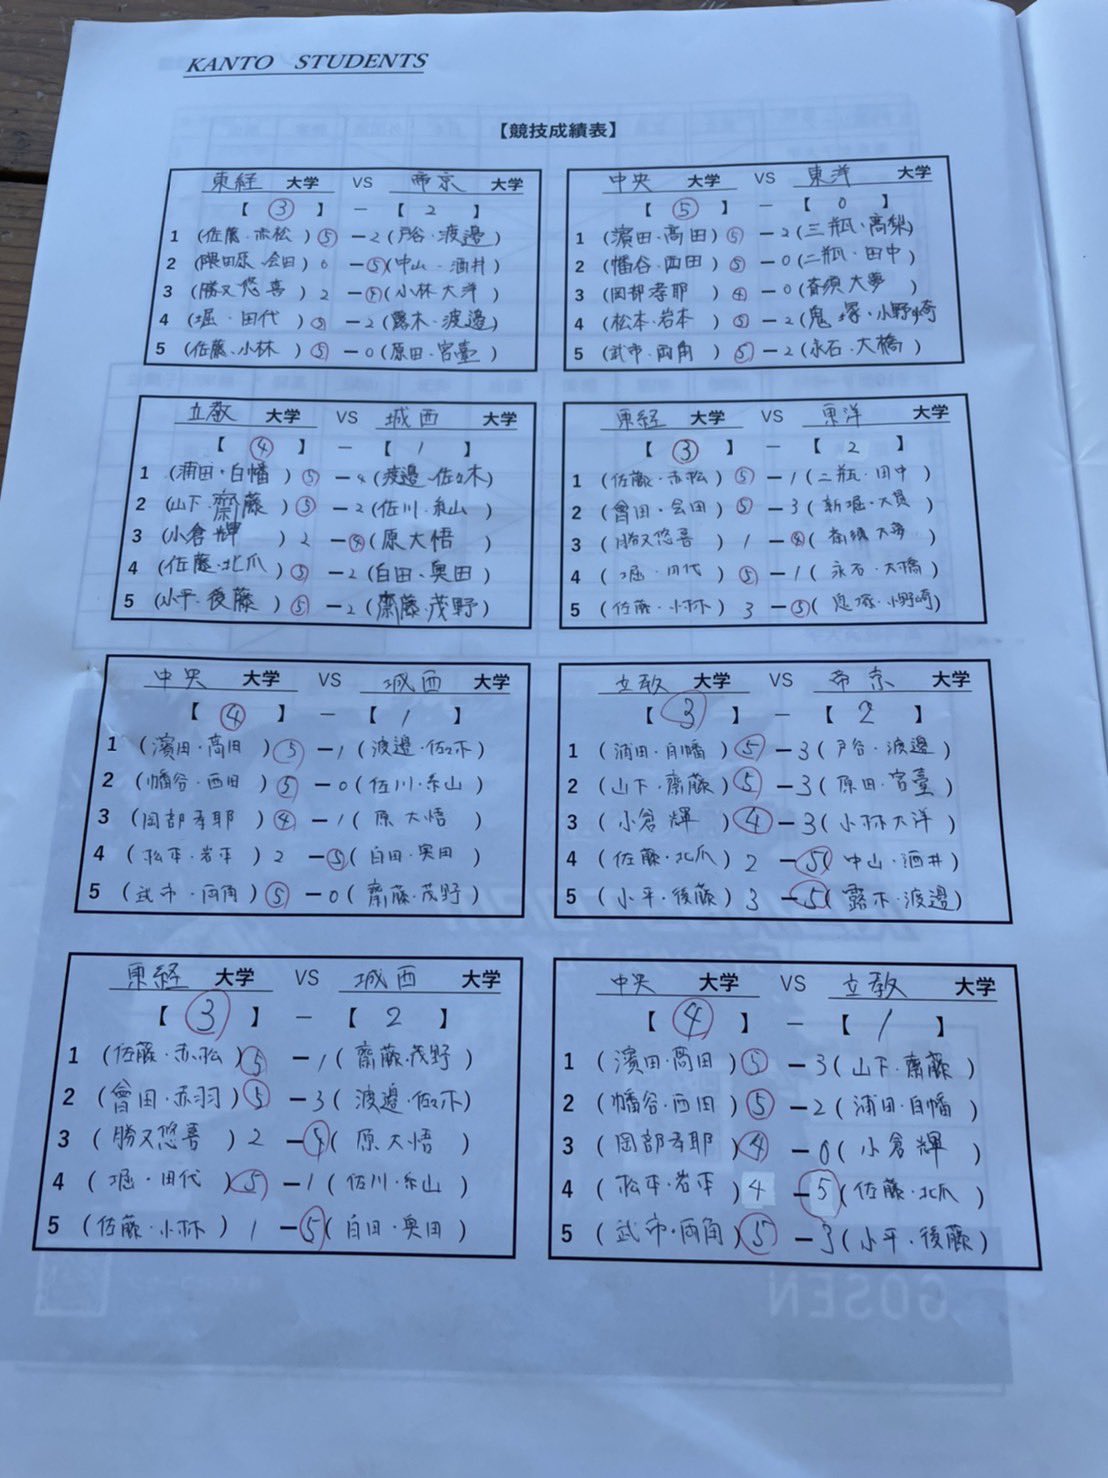 KANTO STUDENTS
【競技成績表】
東経 大学 VS 帝京 大学
【 ③ 】 － 【 2 】
1 (佐藤・赤松) ⑤ － 2 (戸谷・渡邉)
2 (隈田原・会田) 0 － ⑤ (中山・酒井)
3 (勝又悠喜) 2 － ④ (小林大洋)
4 (堀・田代) ⑤ － 2 (露木・渡邉)
5 (佐藤・小林) ⑤ － 0 (原田・宮臺)
中央 大学 VS 東洋 大学
【 ⑤ 】 － 【 0 】
1 (濱田・髙田) ⑤ － 2 (三瓶・高梨)
2 (幡谷・西田) ⑤ － 0 (二瓶・田中)
3 (岡部孝耶) ④ － 0 (斎須大夢)
4 (松本・岩本) ⑤ － 2 (鬼塚・小野崎)
5 (武市・両角) ⑤ － 2 (永石・大橋)
立教 大学 VS 城西 大学
【 ④ 】 － 【 1 】
1 (浦田・白幡) ⑤ － 4 (渡邉・佐々木)
2 (山下・齋藤) ⑤ － 2 (佐川・糸山)
3 (小倉輝) 2 － ④ (原大悟)
4 (佐藤・北爪) ⑤ － 2 (白田・奥田)
5 (小平・後藤) ⑤ － 2 (齋藤・茂野)
東経 大学 VS 東洋 大学
【 ③ 】 － 【 2 】
1 (佐藤・赤松) ⑤ － 1 (二瓶・田中)
2 (曾田・会田) ⑤ － 3 (新堀・大貫)
3 (勝又悠喜) 1 － ④ (斎須大夢)
4 (堀・田代) ⑤ － 1 (永石・大橋)
5 (佐藤・小林) 3 － ⑤ (鬼塚・小野崎)
中央 大学 VS 城西 大学
【 ④ 】 － 【 1 】
1 (濱田・髙田) ⑤ － 1 (渡邉・佐々木)
2 (幡谷・西田) ⑤ － 0 (佐川・糸山)
3 (岡部孝耶) ④ － 1 (原大悟)
4 (松本・岩本) 2 － ⑤ (白田・奥田)
5 (武市・両角) ⑤ － 0 (齋藤・茂野)
立教 大学 VS 帝京 大学
【 ③ 】 － 【 2 】
1 (浦田・白幡) ⑤ － 3 (戸谷・渡邉)
2 (山下・齋藤) ⑤ － 3 (原田・宮臺)
3 (小倉輝) ④ － 3 (小林大洋)
4 (佐藤・北爪) 2 － ⑤ (中山・酒井)
5 (小平・後藤) 3 － ⑤ (露木・渡邉)
東経 大学 VS 城西 大学
【 ③ 】 － 【 2 】
1 (佐藤・赤松) ⑤ － 1 (齋藤・茂野)
2 (曾田・赤羽) ⑤ － 3 (渡邉・佐々木)
3 (勝又悠喜) 2 － ④ (原大悟)
4 (堀・田代) ⑤ － 1 (佐川・糸山)
5 (佐藤・小林) 1 － ⑤ (白田・奥田)
中央 大学 VS 立教 大学
【 ④ 】 － 【 1 】
1 (濱田・髙田) ⑤ － 3 (山下・齋藤)
2 (幡谷・西田) ⑤ － 2 (浦田・白幡)
3 (岡部孝耶) ④ － 0 (小倉輝)
4 (松本・岩本) 4 － 5 (佐藤・北爪)
5 (武市・両角) ⑤ － 3 (小平・後藤)
GOSEN